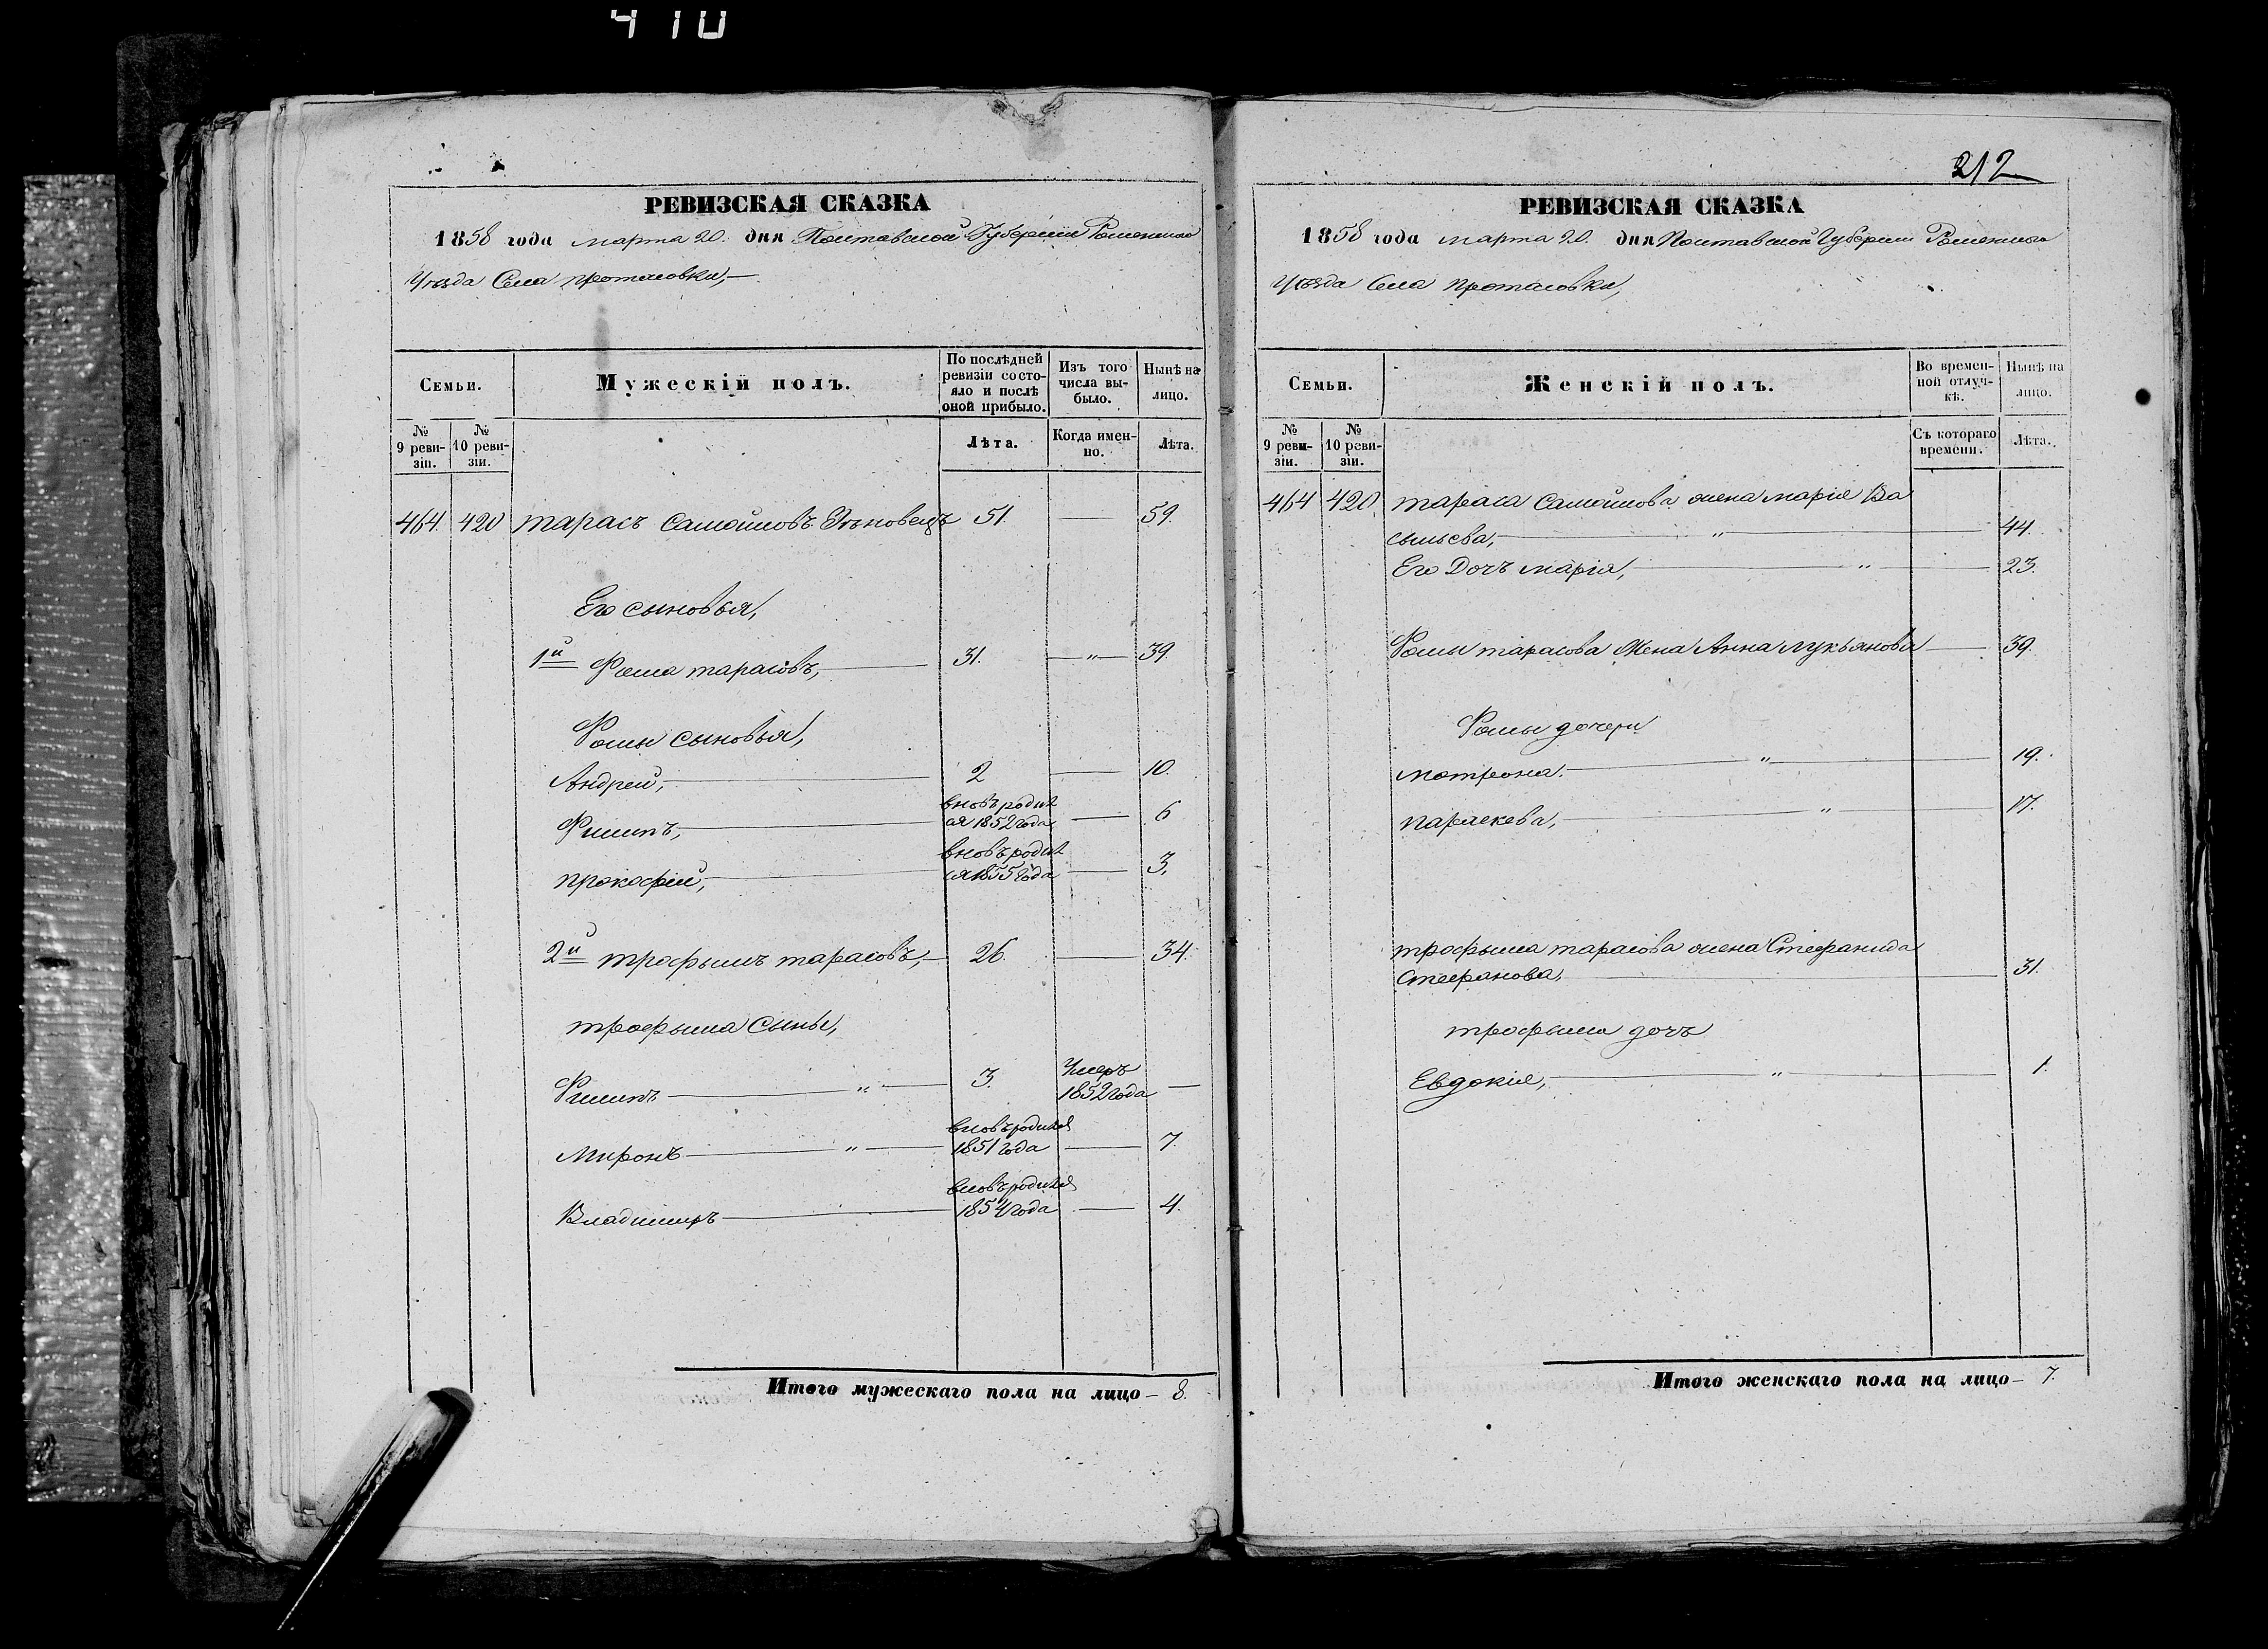 410
РЕВИЗСКАЯ СКАЗКА
1858 года марта 20. дня Полтавской Губерніи Роменскаго
Уѣзда Села Протасовки,
Семьи.
Мужескій полъ.
По послѣдней ревизіи состояло и послѣ оной прибыло.
Изъ того числа выбыло.
Нынѣ на лицо.
№ 9 ревизіи.
№ 10 ревизіи.
Лѣта.
Когда именно.
Лѣта.
464. 420 Тарасъ Самойловъ 51. — 59.
Его сыновья,
1й Фома тарасовъ, 31. —"— 39.
Фомы сыновья,
Андрей, 2 — 10.
Филипъ, вновь родил ся 1852 года — 6
прокофій, вновь родил ся 1855 года — 3.
2й трофымъ тарасовъ, 26. — 34.
трофыма Сыны,
Филипъ " 3. Умеръ 1852 года —
Миронъ " вновь родился 1851 года — 7.
Владимиръ вновь родился 1854 года — 4.
Итого мужескаго пола на лицо — 8.
212
РЕВИЗСКАЯ СКАЗКА
1858 года марта 20. дня Полтавской Губерніи Роменскаго
Уѣзда Села Протасовки,
Семьи.
Женскій полъ.
Во временной отлучкѣ.
Нынѣ на лицо.
№ 9 ревизіи.
№ 10 ревизіи.
Съ котораго времени.
Лѣта.
464 420 Тараса Самойлова жена марія Ва
сыльева, " 44.
Его Дочъ марія, " 23.
Фомы тарасова Жена Анна лукьянова — 39.
Фомы дочери
мотрона. " 19.
параскева, " 17.
трофыма тарасова жена Стефанида
Стефанова, 31.
трофыма дочъ
Евдокія, " 1.
Итого женскаго пола на лицо — 7.